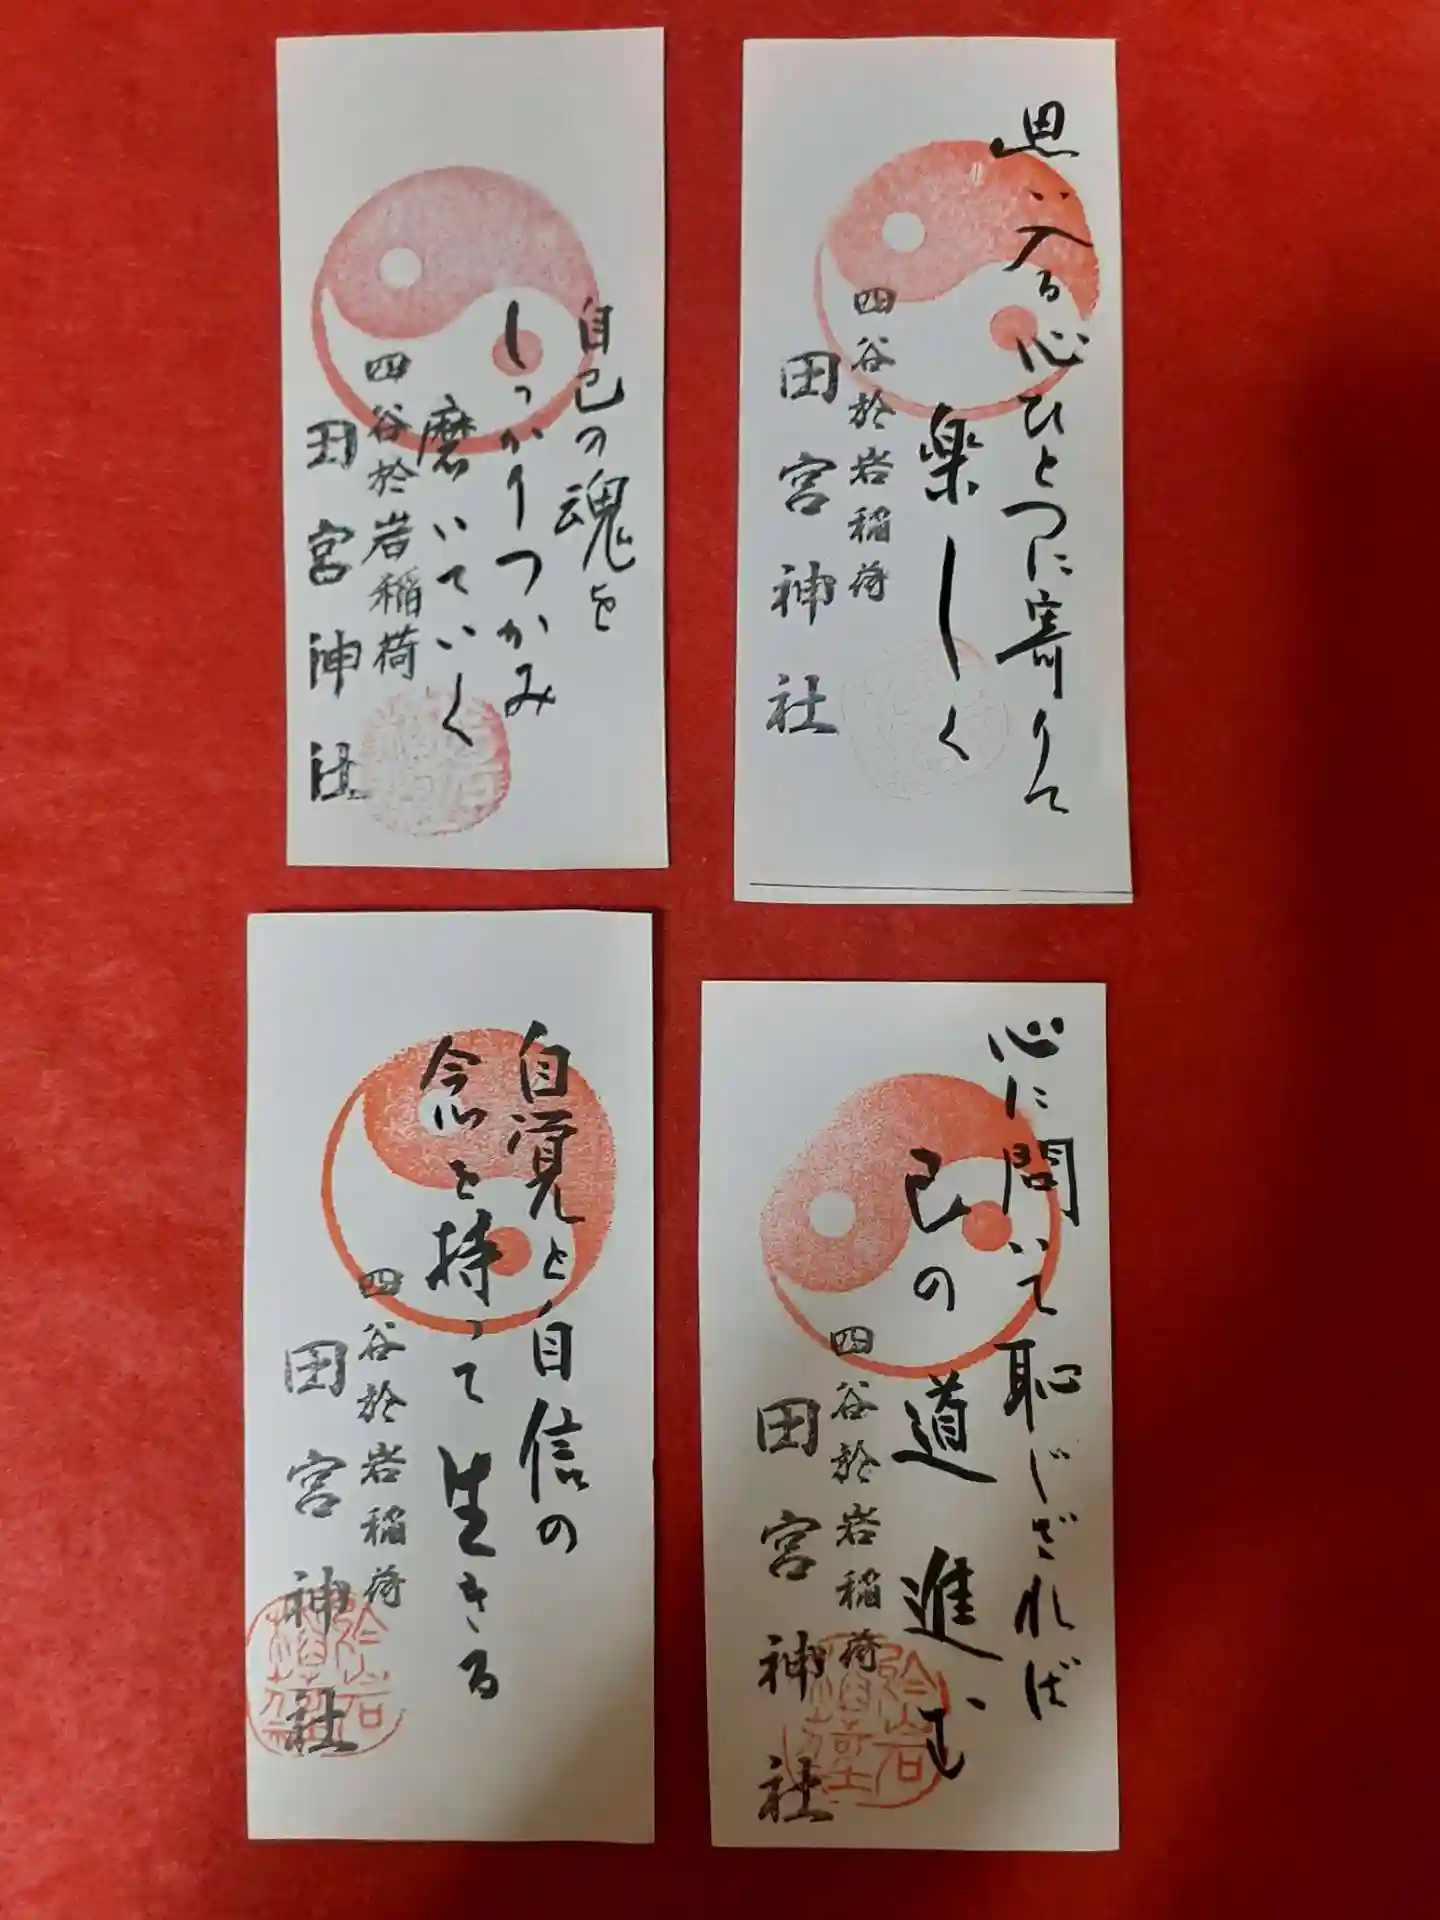 自己の魂を
しっかりつかみ
磨いていく
四谷於岩稲荷
田宮神社
思い入る心ひとつに寄りて
楽しく
四谷於岩稲荷
田宮神社
自覚と自信の
念を持って生きる
四谷於岩稲荷
田宮神社
心に問いて恥じざれば
己の道進む
四谷於岩稲荷
田宮神社